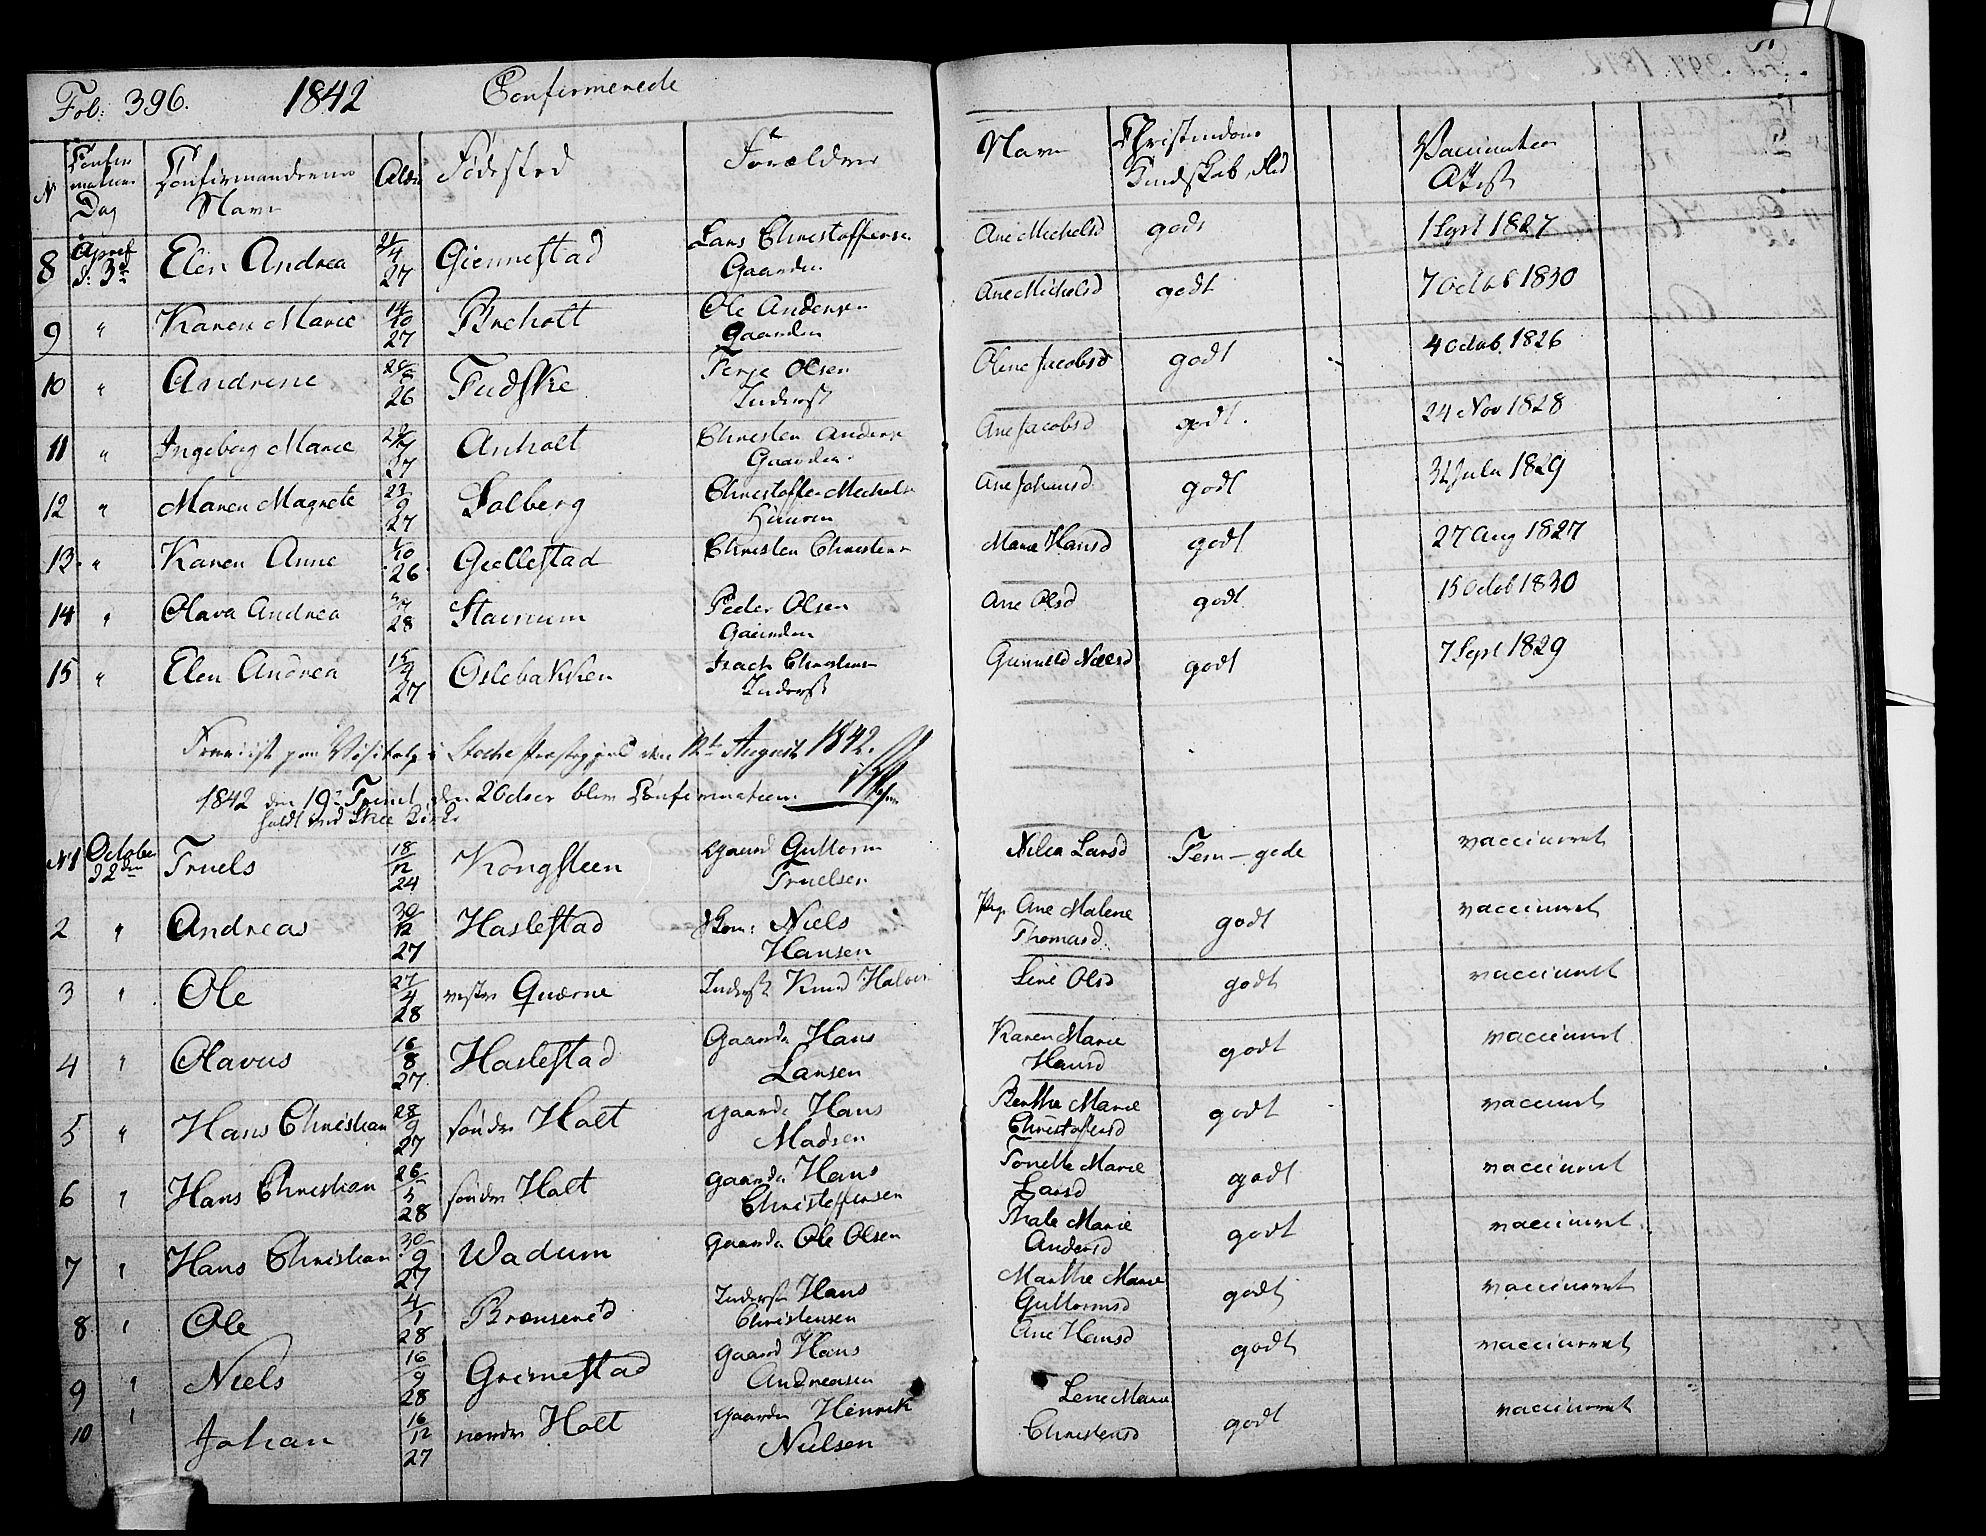 Fol: 396. 1842 Confirmerede
N Confirmations Dag Confirmanderne Navn Alder Fødested Forældre Navn Christendoms Kundskab, Flid Vaccination Attest
8 April d: 3de Elen Andrea 4 27 Giennestad Lars Christoffersen Gaarden Ane Michelsd godt 1 Sept 1827
9 " Karen Marie 14/10 27 Breholt Ole Andersen Gaarden Ane Michelsd godt 7 Octob 1830
10 " Andrine 26 Fudske Terje Olsen Inderst Oline Jacobsd godt 4 Octob. 1826
11 " Ingeborg Marie 27 Anholt Christen Anders Gaarden Ane Jacobsd godt. 24 Nov 1828
12 " Maren Magrete 23/9 27 Solberg Christoffer Michels Ane Johansd godt 31 Julii 1829
13. " Karen Anne 10 26 Giellestad Christen Christens Marie Hansd godt 27 Aug 1827
14 " Olava Andrea 28 Starnum Peder Olsen Gaarden Ane Olsd godt 15 Octob 1830
15 " Elen Andrea 15/9 27 Oslebakken Isach Christens Inderst Gunnild Nielsd godt 7 Sept 1829
Fremvist paa Visitats i Stokke Præstegjeld den 12te August 1842.
1842 den 19de Trinit. den 2 Octobr blev Confirmation
holdt ved Kirke
N1 October d 2den Truels 18/12 24 Kongsteen Gaard Guttorm Truelsen Nilia Larsd Fem - gode vaccineret
2 " Andreas 30/12 27 Haslestad Skom: Niels Hansen Pig. Ane Malene Thomasd. godt vaccineret
3 " Ole 27/4 28 vestre Qværne Inderst Knud Halvor Line Olsd godt vaccineret
4 " Olavus 16/8 27. Haslestad Gaardm Hans Larsen Karen Marie Hansd godt vaccineret
5 " Hans Christian 28/9 27 søndre Holt gaardm Hans Madsen Berthe Marie Christofersd godt vaccinert
6 " Hans Christian 26/5 28 søndre Holt gaardm Hans Christoffersen Tonette Marie Larsd godt vaccineret
7 " Hans Christian 30/9 27 Wadum gaardm Ole Olsen Thale Marie Andersd godt vaccineret
8 " Ole 4/1 28 Brænsered Inderst Hans Christensen Marthe Marie Guttormsd godt vaccineret
9 " Niels 16/9 28 Grimestad gaard Hans Andreasen Ane Hansd godt vaccineret
10 " Johan 16/12 27 nordre Holt gaardm Henrik Nielsen Lene Marie Christensd godt vaccineret